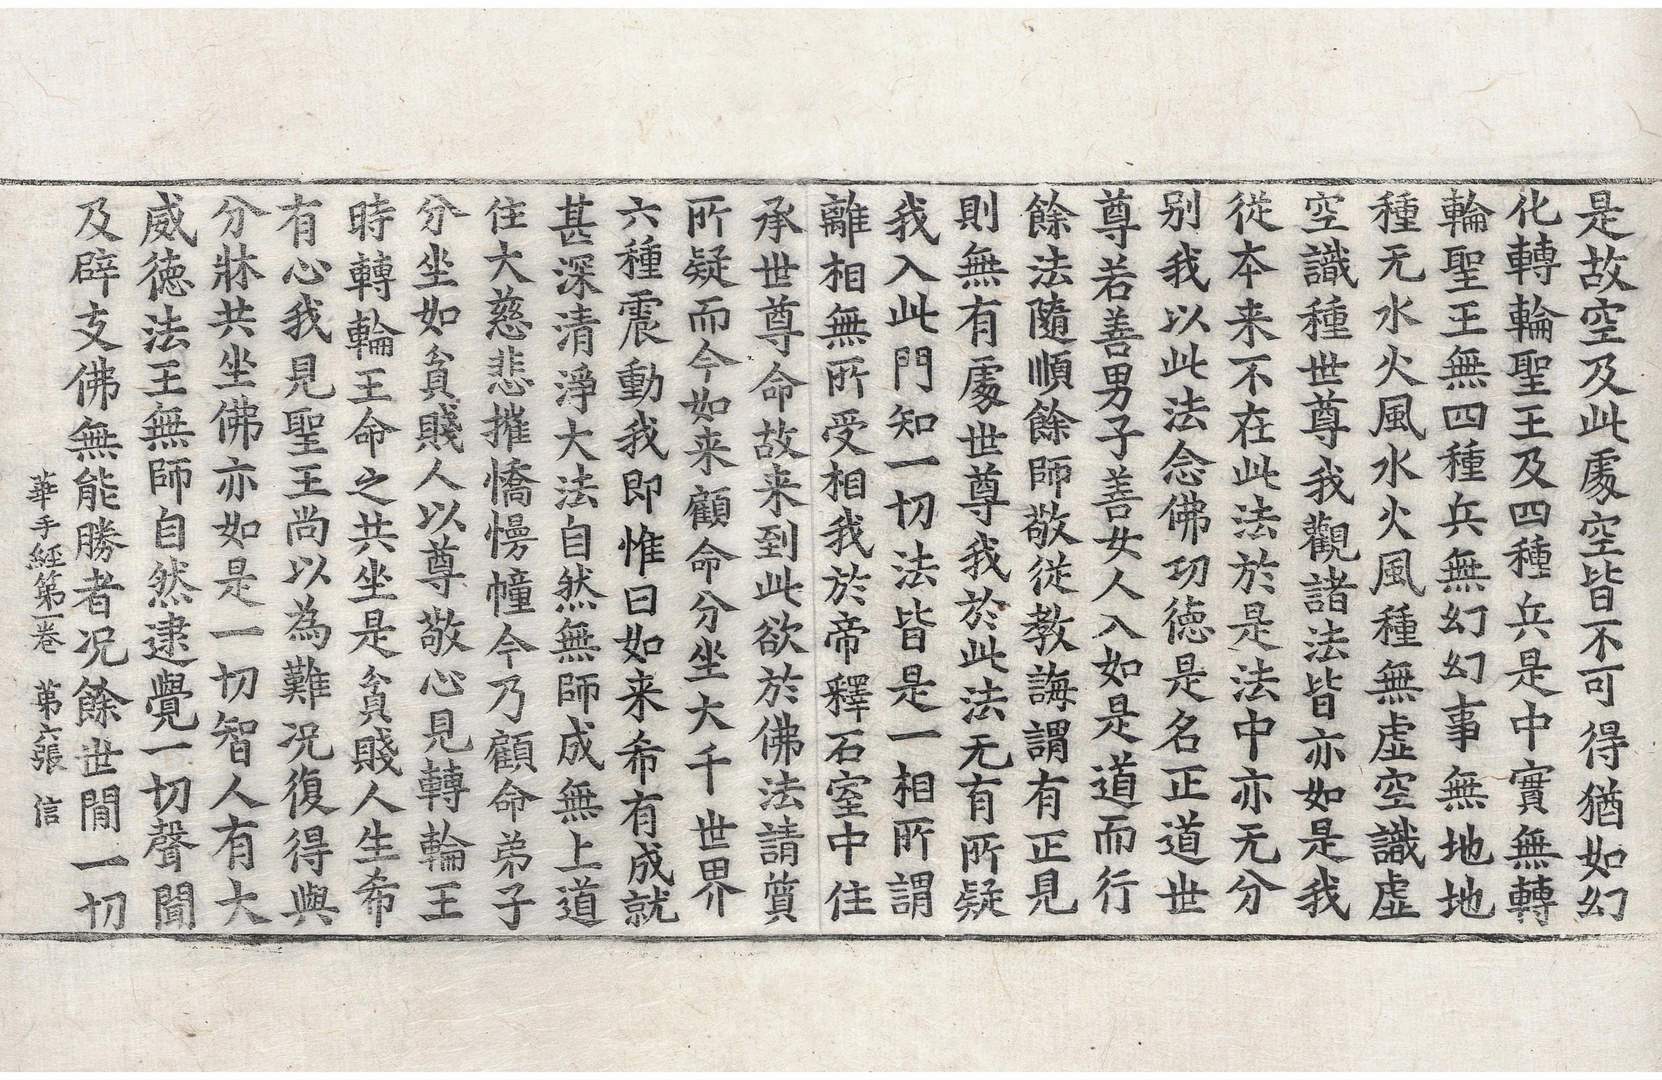 是故空及此處空皆不可得猶如幻
化轉輪聖王及四種兵是中實無轉
輪聖王無四種兵無幻幻事無地地
種无水火風水火風種無虛空識虛
空識種世尊我觀諸法皆亦如是我
從本来不在此法於是法中亦无分
別我以此法念佛功徳是名正道世
尊若善男子善女人入如是道而行
餘法隨順餘師敬從教誨謂有正見
則無有處世尊我於此法无有所疑
我入此門知一切法皆是一相所謂
離相無所受相我於帝釋石室中住
承世尊命故来到此欲於佛法請質
所疑而今如来顧命分坐大千世界
六種震動我即惟曰如来希有成就
甚深清淨大法自然無師成無上道
住大慈悲摧憍慢幢今乃顧命弟子
分坐如貧賤人以尊敬心見轉輪王
時轉輪王命之共坐是貧賤人生希
有心我見聖王尚以為難况復得與
分牀共坐佛亦如是一切智人有大
威徳法王無師自然逮覺一切聲聞
及辟支佛無能勝者况餘世間一切
華手經第一卷 第六張 信